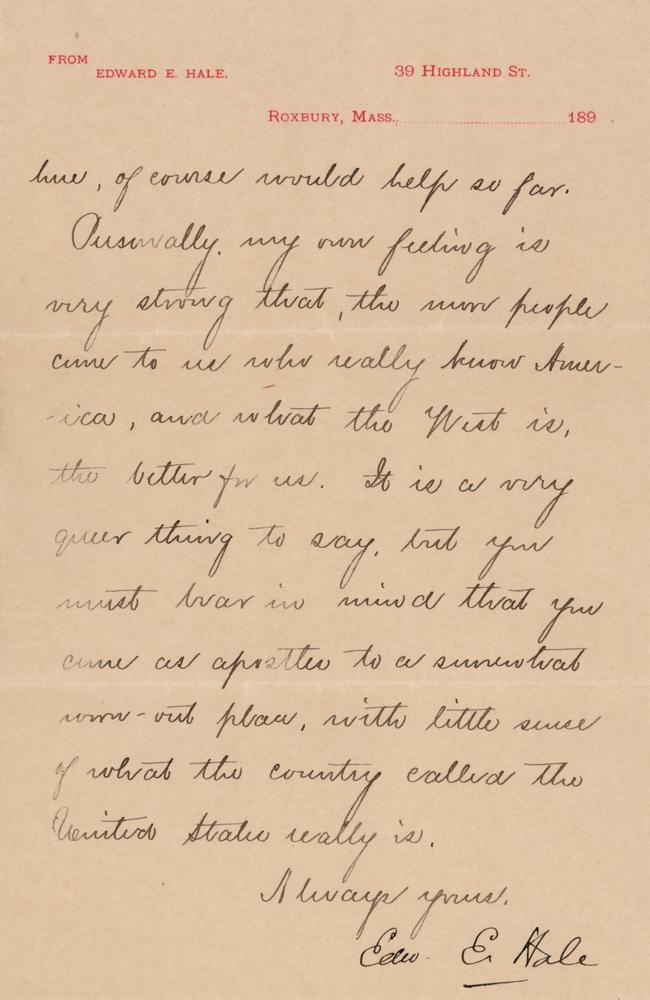 FROM
EDWARD E. HALE.
39 HIGHLAND ST.
ROXBURY, MASS., 189 .
line, of course would help so far.
Personally, my own feeling is
very strong that, the more people
come to us who really know Amer-
-ica, and what the West is,
the better for us. It is a very
queer thing to say, but you
must bear in mind that you
come as apostles to a somewhat
worn-out place, with little sense
of what the country called the
United States really is.
Always yours.
Edw. E. Hale